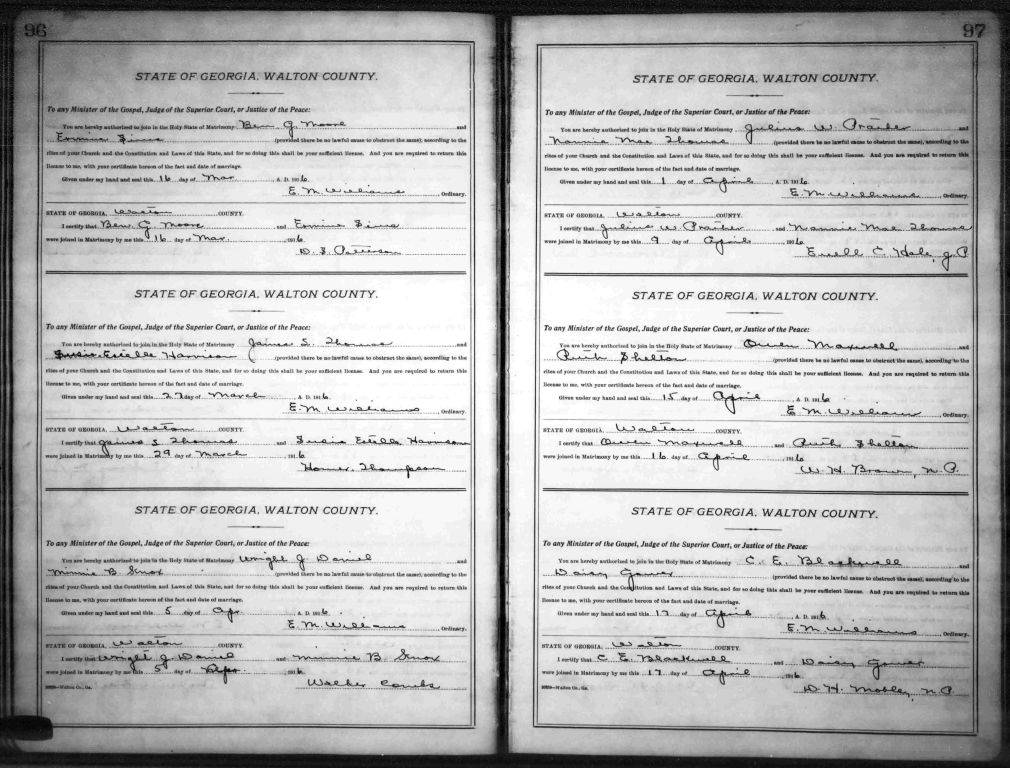 96
STATE OF GEORGIA, WALTON COUNTY.
To any Minister of the Gospel, Judge of the Superior Court, or Justice of the Peace:
You are hereby authorized to join in the Holy State of Matrimony Ben G. Moore and
Emmie Sims (provided there be no lawful cause to obstruct the same), according to the
rites of your Church and the Constitution and Laws of this State, and for so doing this shall be your sufficient license. And you are required to return this
license to me, with your certificate hereon of the fact and date of marriage.
Given under my hand and seal this 16 day of Mar A. D. 1916.
E. M. Williams, Ordinary.
STATE OF GEORGIA, Walton COUNTY.
I certify that Ben. G. Moore and Emmie Sims
were joined in Matrimony by me this 16 day of Mar. 1916
D. S. Patterson
STATE OF GEORGIA, WALTON COUNTY.
To any Minister of the Gospel, Judge of the Superior Court, or Justice of the Peace:
You are hereby authorized to join in the Holy State of Matrimony James S. Thomas and
Susie Estelle Harrison (provided there be no lawful cause to obstruct the same), according to the
rites of your Church and the Constitution and Laws of this State, and for so doing this shall be your sufficient license. And you are required to return this
license to me, with your certificate hereon of the fact and date of marriage.
Given under my hand and seal this 27 day of March A. D. 1916.
E. M. Williams, Ordinary.
STATE OF GEORGIA, Walton COUNTY.
I certify that James S Thomas and Susie Estelle Harrison
were joined in Matrimony by me this 29 day of March 1916
Homer Thompson
STATE OF GEORGIA, WALTON COUNTY.
To any Minister of the Gospel, Judge of the Superior Court, or Justice of the Peace:
You are hereby authorized to join in the Holy State of Matrimony Wright J Daniel and
Minnie B Knox (provided there be no lawful cause to obstruct the same), according to the
rites of your Church and the Constitution and Laws of this State, and for so doing this shall be your sufficient license. And you are required to return this
license to me, with your certificate hereon of the fact and date of marriage.
Given under my hand and seal this 5 day of Apr A. D. 1916.
E. M. Williams, Ordinary.
STATE OF GEORGIA, Walton COUNTY.
I certify that Wright J. Daniel and Minnie B. Knox
were joined in Matrimony by me this 5 day of 1916
Walker Combs
Walton Co., Ga.
97
STATE OF GEORGIA, WALTON COUNTY.
To any Minister of the Gospel, Judge of the Superior Court, or Justice of the Peace:
You are hereby authorized to join in the Holy State of Matrimony Julius W. Prather and
Nannie Mae Thomas (provided there be no lawful cause to obstruct the same), according to the
rites of your Church and the Constitution and Laws of this State, and for so doing this shall be your sufficient license. And you are required to return this
license to me, with your certificate hereon of the fact and date of marriage.
Given under my hand and seal this 1 day of April A. D. 1916
E. M. Williams, Ordinary.
STATE OF GEORGIA, Walton COUNTY.
I certify that Julius W. Prather and Nannie Mae Thomas
were joined in Matrimony by me this 9 day of April 1916
C. Hale, J P
STATE OF GEORGIA, WALTON COUNTY.
To any Minister of the Gospel, Judge of the Superior Court, or Justice of the Peace:
You are hereby authorized to join in the Holy State of Matrimony Owen Maxwell and
Ruth Shelton (provided there be no lawful cause to obstruct the same), according to the
rites of your Church and the Constitution and Laws of this State, and for so doing this shall be your sufficient license. And you are required to return this
license to me, with your certificate hereon of the fact and date of marriage.
Given under my hand and seal this 15 day of April A. D. 1916
E. M. Williams, Ordinary.
STATE OF GEORGIA, Walton COUNTY.
I certify that Owen Maxwell and Ruth Shelton
were joined in Matrimony by me this 16 day of April 1916
W. H. Brown, N. P.
STATE OF GEORGIA, WALTON COUNTY.
To any Minister of the Gospel, Judge of the Superior Court, or Justice of the Peace:
You are hereby authorized to join in the Holy State of Matrimony C. E. Blackwell and
Daisy (provided there be no lawful cause to obstruct the same), according to the
rites of your Church and the Constitution and Laws of this State, and for so doing this shall be your sufficient license. And you are required to return this
license to me, with your certificate hereon of the fact and date of marriage.
Given under my hand and seal this 17 day of April A. D. 1916
E. M. Williams, Ordinary.
STATE OF GEORGIA, Walton COUNTY.
I certify that C. E. Blackwell and Daisy
were joined in Matrimony by me this 17 day of April 1916
D. H. Mobley, N. P.
Walton Co., Ga.